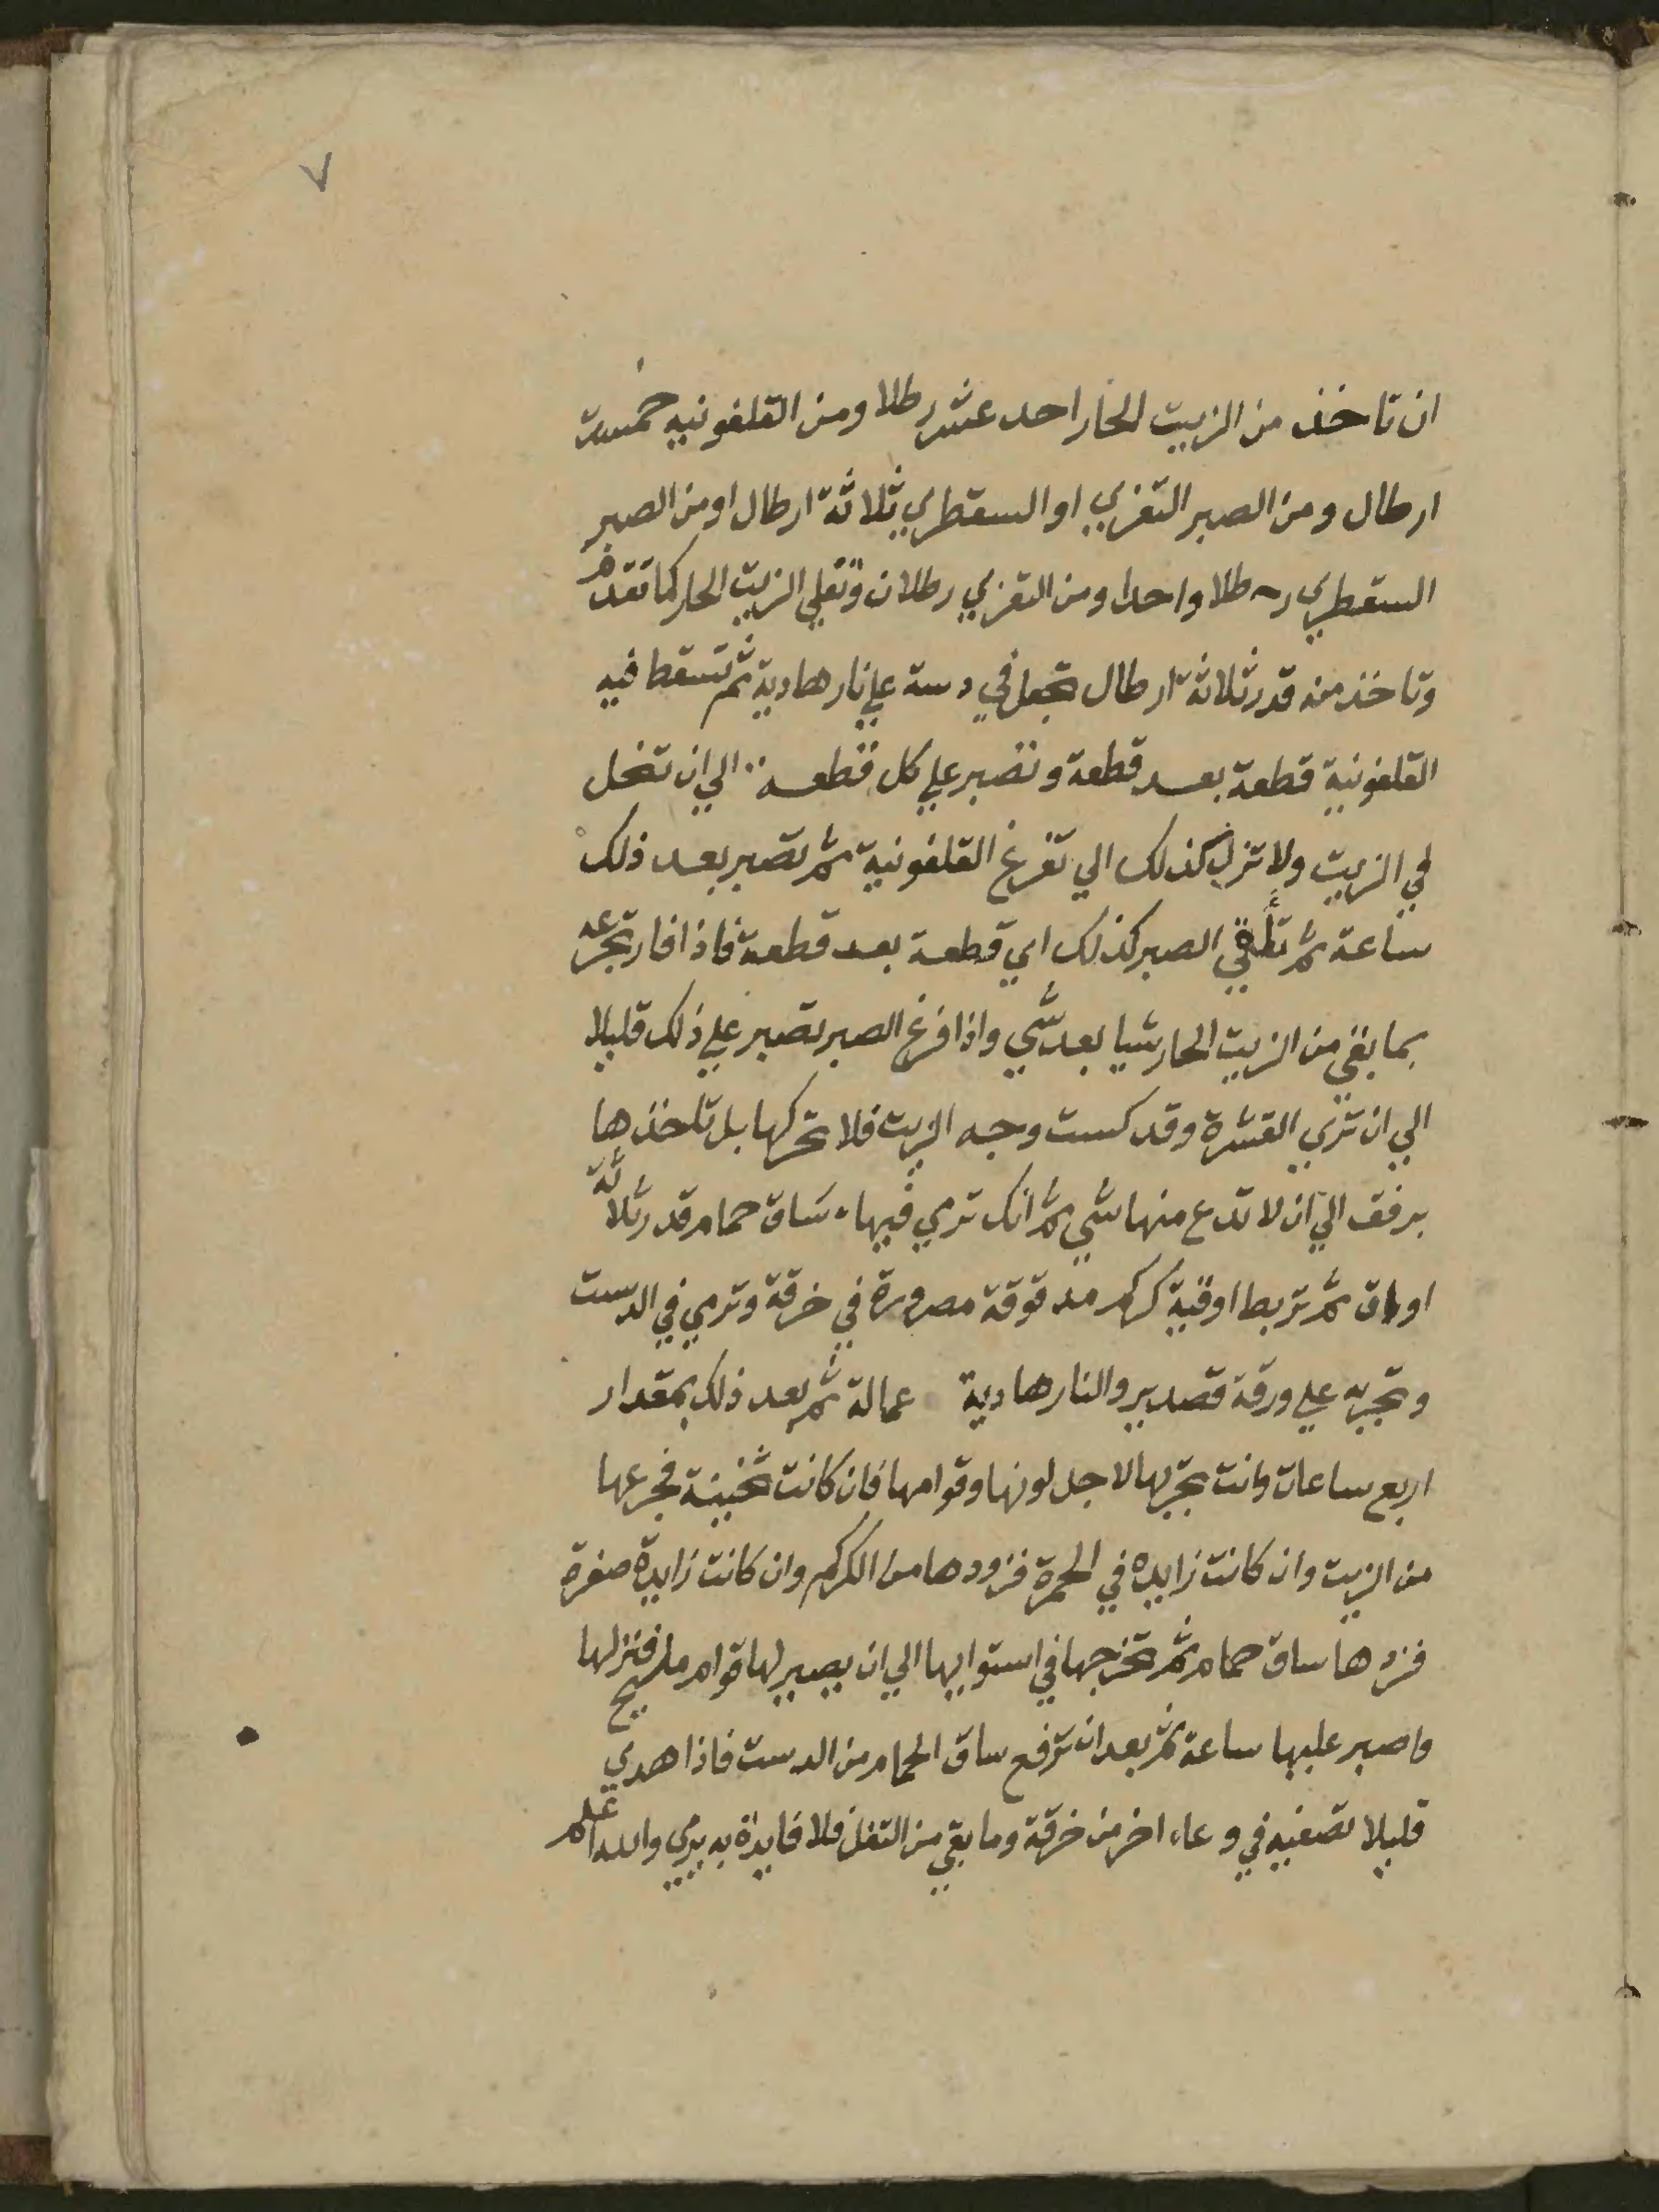 ٧
ان تاخذ من الزيت الحار احد عشر رطلا ومن القلفونيه خمسة
ارطال ومن الصبر التعزي او السقطري ثلاثة ارطال او من الصبر
السقطري رطلا واحدا ومن التعزي رطلان وتغلي الزيت الحار كما تقدم
وتاخذ منه قدر ثلاثة ارطال تجعل في دست علي نار هادية ثم تسقط فيه
القلفونية قطعة بعد قطعة وتصبر علي كل قطعه الي ان تنحل
في الزيت ولا تزل كذلك الي تفرغ القلفونية ثم تصبر بعد ذلك
ساعة ثم تلقي الصبر كذلك اي قطعة بعد قطعة فاذا فار تجرعه
بما بقي من الزيت الحار شيا بعد شي واذا فرغ الصبر تصبر علي ذلك قليلا
الي ان تري القشرة وقد كست وجه الزيت فلا تحركها بل تاخذها
برفق الي ان لا تدع منها شي ثم انك ترمي فيها ساق حمام قدر ثلاثة
اواق ثم تربط اوقية كركم مدقوقة مصرورة في خرقة وترمي في الدست
وتجربه علي ورقة قصدير والنار هادية عمالة ثم بعد ذلك بمقدار
اربع ساعات وانت تجربها لاجل لونها وقوامها فان كانت ثخينة فجرعها
من الزيت وان كانت زايده في الحمرة فزودها من الكركم وان كانت زايدة صفرة
فزدها ساق حمام ثم تخرجها في استوايها الي ان يصير لها قوام مليح فنزلها
واصبر عليها ساعة ثم بعد ان ترفع ساق الحمام من الدست فاذا هدي
قليلا تصفيه في وعاء اخر من خرقة وما بقي من التفل فلا فايدة به يرمي والله اعلم